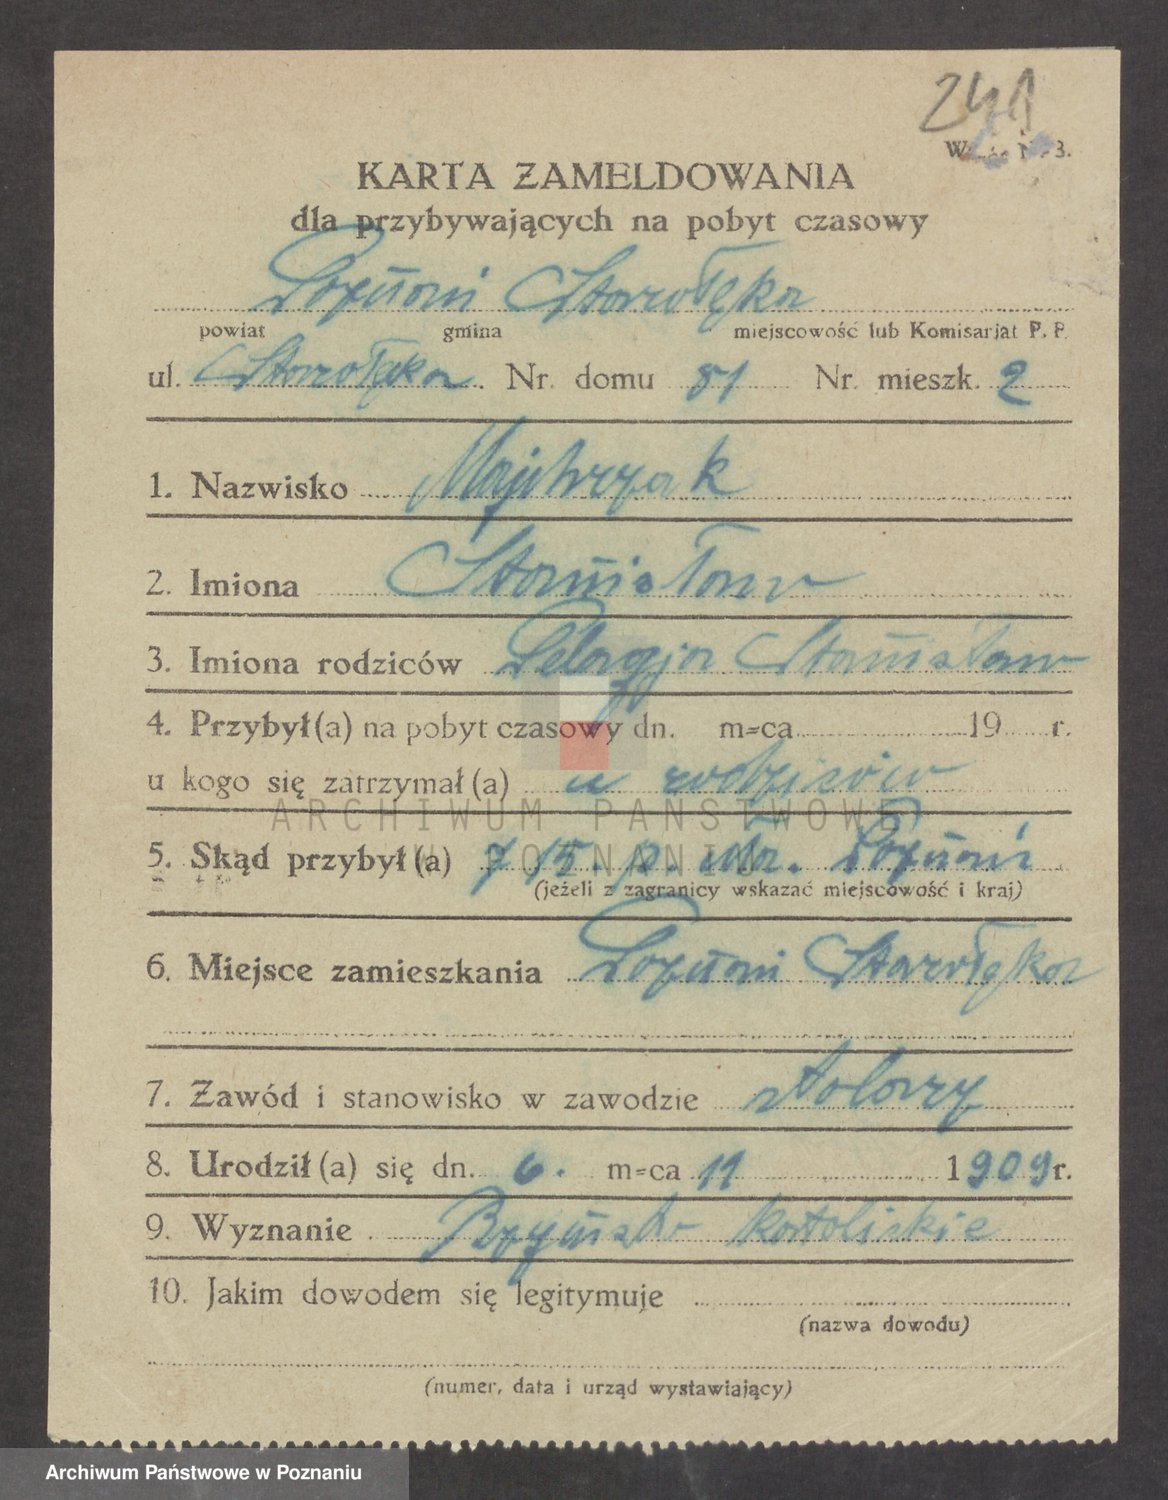 241
Wzór Nr 3.
KARTA ZAMELDOWANIA
dla przybywających na pobyt czasowy
Poznań Starołęka
powiat gmina miejscowość lub Komisarjat P. P.
ul. Starołęka Nr. domu 51 Nr. mieszk. 2
1. Nazwisko Majchrzak
2. Imiona Stanisław
3. Imiona rodziców Pelagja Stanisław
4. Przybył(a) na pobyt czasowy dn. m-ca 19 r.
u kogo się zatrzymał(a) u rodziców
ARCHIWUM PAŃSTWOWE
W POZNANIU
5. Skąd przybył(a) 7/15. p. Poznań
(jeżeli z zagranicy wskazać miejscowość i kraj)
6. Miejsce zamieszkania Poznań Starołęka
7. Zawód i stanowisko w zawodzie stolarz
8. Urodził(a) się dn. 6. m-ca 11 1909 r.
9. Wyznanie katolickie
10. Jakim dowodem się legitymuje
(nazwa dowodu)
(numer, data i urząd wystawiający)
Archiwum Państwowe w Poznaniu